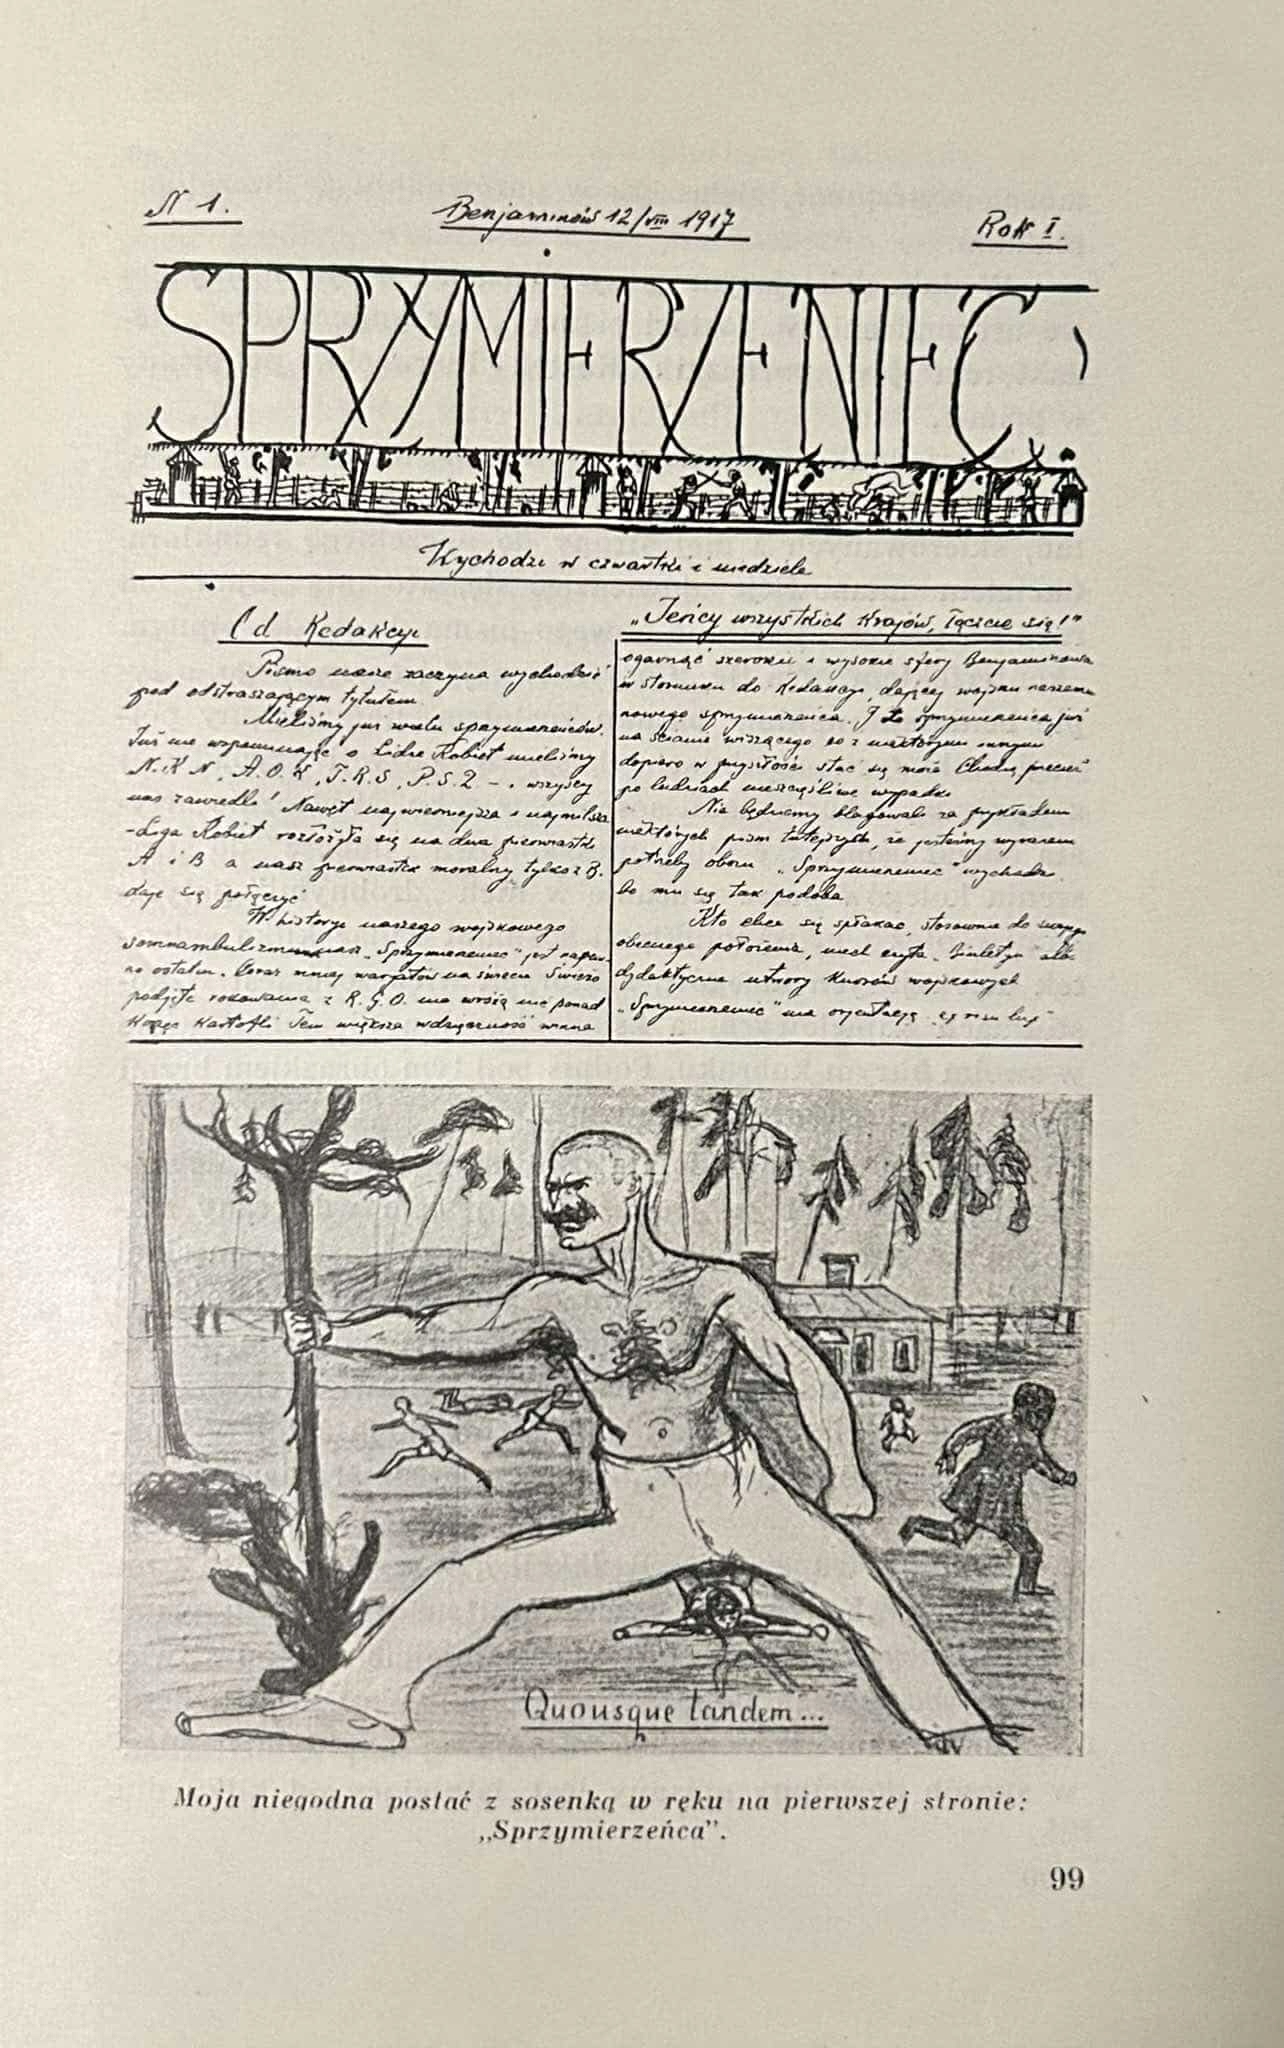 N 1.
Benjaminów 12/VIII 1917
Rok I.
SPRZYMIERZENIEC
Wychodzi w czwartki i niedziele
Od Redakcyi
Pismo nasze zaczyna wychodzić
pod odstraszającym tytułem
Mieliśmy już wielu sprzymierzeńców.
Już nie wspominając o Lidze Kobiet mieliśmy
N.K.N, A.O.K, T.R.S, P.S.Z. – wszyscy
nas zawiedli! Nawet najwierniejsza i najmilsza
-Liga Kobiet rozłożyła się na dwa pierwiastki
A i B a nasz pierwiastek moralny tylko z B.
daje się połączyć
W historyi naszego wojskowego
somnambulizmu nasz „Sprzymierzeniec" jest
no ostatni. Coraz mniej warjatów na świecie Świeżo
podjęte rokowania z R.G.O. nie wróżą nic ponad
kartofli Tem większa wdzięczność winna
„Jeńcy wszystkich krajów, łączcie się!"
ogarnąć szerokie i wysokie sfery Benjaminowa
w stosunku do Redakcyi, dającej wojsku naszemu
nowego sprzymierzeńca. I to sprzymierzeńca już
na ścianie wiszącego co z niektórymi innymi
dopiero w przyszłości stać się może Chodzą przecież
po ludziach nieszczęśliwe wypadki
Nie będziemy blagowali za przykładem
niektórych pism tutejszych, że jesteśmy wyrazem
potrzeby obozu „Sprzymierzeniec" wychodzi,
bo mu się tak podoba
Kto chce się spłakać, stosownie do swego
obecnego położenia, niech czyta „Biuletyn" albo
dydaktyczne utwory kursów wojskowych
„Sprzymierzeniec" ma orjentację
Quousque tandem...
Moja niegodna postać z sosenką w ręku na pierwszej stronie:
„Sprzymierzeńca".
99